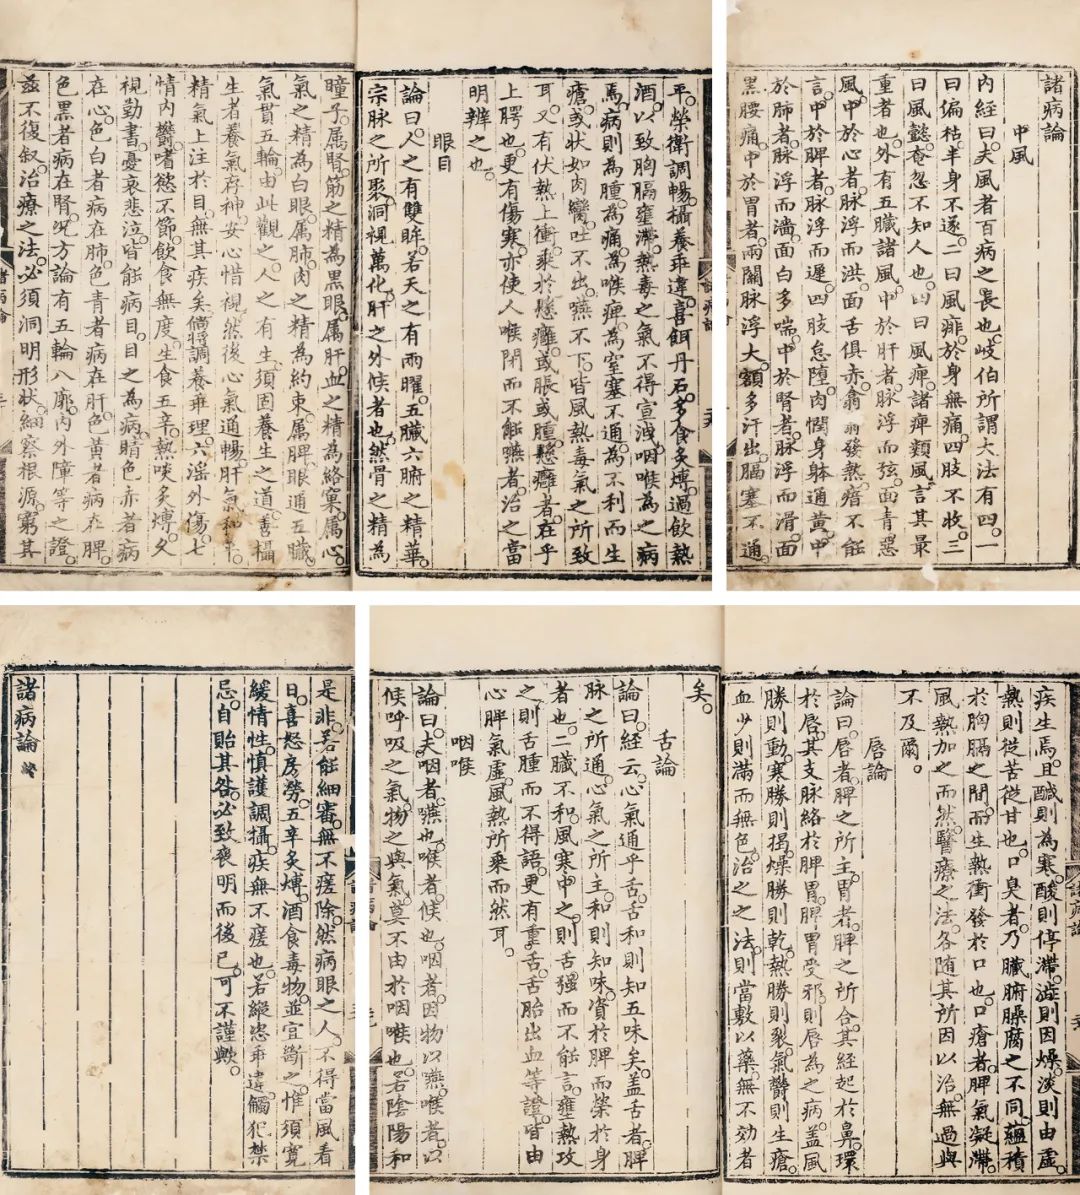 諸病論
中風
內經曰。夫風者百病之長也。岐伯所謂大法有四。一
曰偏枯。半身不遂。二曰風痱。於身無痛。四肢不收。三
曰風懿。奄忽不知人也。四曰風痺。諸痺類風。言其最
重者也。外有五臟諸風。中於肝者。脉浮而弦。面青惡
風。中於心者。脉浮而洪。面舌俱赤。翕翕發熱。瘖不能
言。中於脾者。脉浮而遲。四肢怠墮。肉𥆧身躰通黃。中
於肺者。脉浮而濇。面白多喘。中於腎者。脉浮而滑。面
黑腰痛。中於胃者。兩關脉浮大。額多汗出。膈塞不通
疾生焉。且鹹則為寒。酸則停滯。澁則因燥。淡則由虛。
熱則從苦從甘也。口臭者。乃臟腑臊腐之不同。蘊積
於胸膈之間。而生熱衝發於口也。口瘡者。脾氣凝滯。
風熱加之而然。醫療之法。各隨其所因以治。無過與
不及爾。
唇論
論曰。唇者。脾之所主。胃者。脾之所合。其經起於鼻。環
於唇。其支脉絡於脾胃。脾胃受邪。則唇為之病。盖風
勝則動。寒勝則揭。燥勝則乾。熱勝則裂。氣欝則生瘡。
血少則瀋而無色。治之之法。則當敷以藥。無不効者
矣。
舌論
論曰。經云。心氣通乎舌。舌和則知五味矣。盖舌者。脾
脉之所通。心氣之所主。和則知味。資於脾而榮於身
者也。二臟不和。風寒中之。則舌强而不能言。壅熱攻
之。則舌腫而不得語。更有重舌。舌胎出血等證。皆由
心脾氣虛。風熱所乘而然耳。
咽喉
論曰。夫咽者。嚥也。喉者。候也。咽者。因物以嚥。喉者。以
候呼吸之氣。物之與氣。莫不由於咽喉也。若陰陽和
平。榮衛調暢。攝養乖違。喜餌丹石。多食炙煿。過飲熱
酒。以致胸膈壅滯。熱毒之氣不得宣洩。咽喉為之病
焉。病則為腫。為痛。為喉痺。為窒塞不通。為不利而生
瘡。或狀如肉臠。吐不出。嚥不下。皆風熱毒氣之所致
耳。又有伏熱上衝。乘於懸癰。或脹或腫。懸癰者。在乎
上腭也。更有傷寒。亦使人喉閉而不能嚥者。治之當
明辨之也。
眼目
論曰。人之有雙眸。若天之有兩曜。五臟六腑之精華。
宗脉之所聚。洞視萬化。肝之外候者也。然骨之精為
瞳子。属腎。筋之精為黑眼。属肝。血之精為絡窠。属心。
氣之精為白眼。属肺。肉之精為約束。属脾。眼通五臟
氣貫五輪。由此觀之。人之有生。須固養生之道。善攝
生者。養氣存神。安心惜視。然後心氣通暢。肝氣和平。
精氣上注於目。無其疾矣。倘將調養乖理。六淫外傷。七
情内欝。嗜慾不節。飲食無度。生食五辛。熱啖炙煿。久
視勤書。憂哀悲泣。皆能病目。目之為病。睛色赤者病
在心。色白者病在肺。色青者病在肝。色黄者病在脾。
色黑者病在腎。况方論有五輪八廓。内外障等之證。
茲不復叙。治療之法。必須洞明形狀。細察根源。窮其
是非。若能細審。無不瘥除。然病眼之人。不得當風看
日。喜怒房勞。五辛炙煿。酒食毒物。並宜斷之。惟須寛
緩情性。慎護調攝。疾無不瘥也。若縱恣乖違。觸犯禁
忌。自貽其咎。必致喪明而後已。可不謹歟。
諸病論終